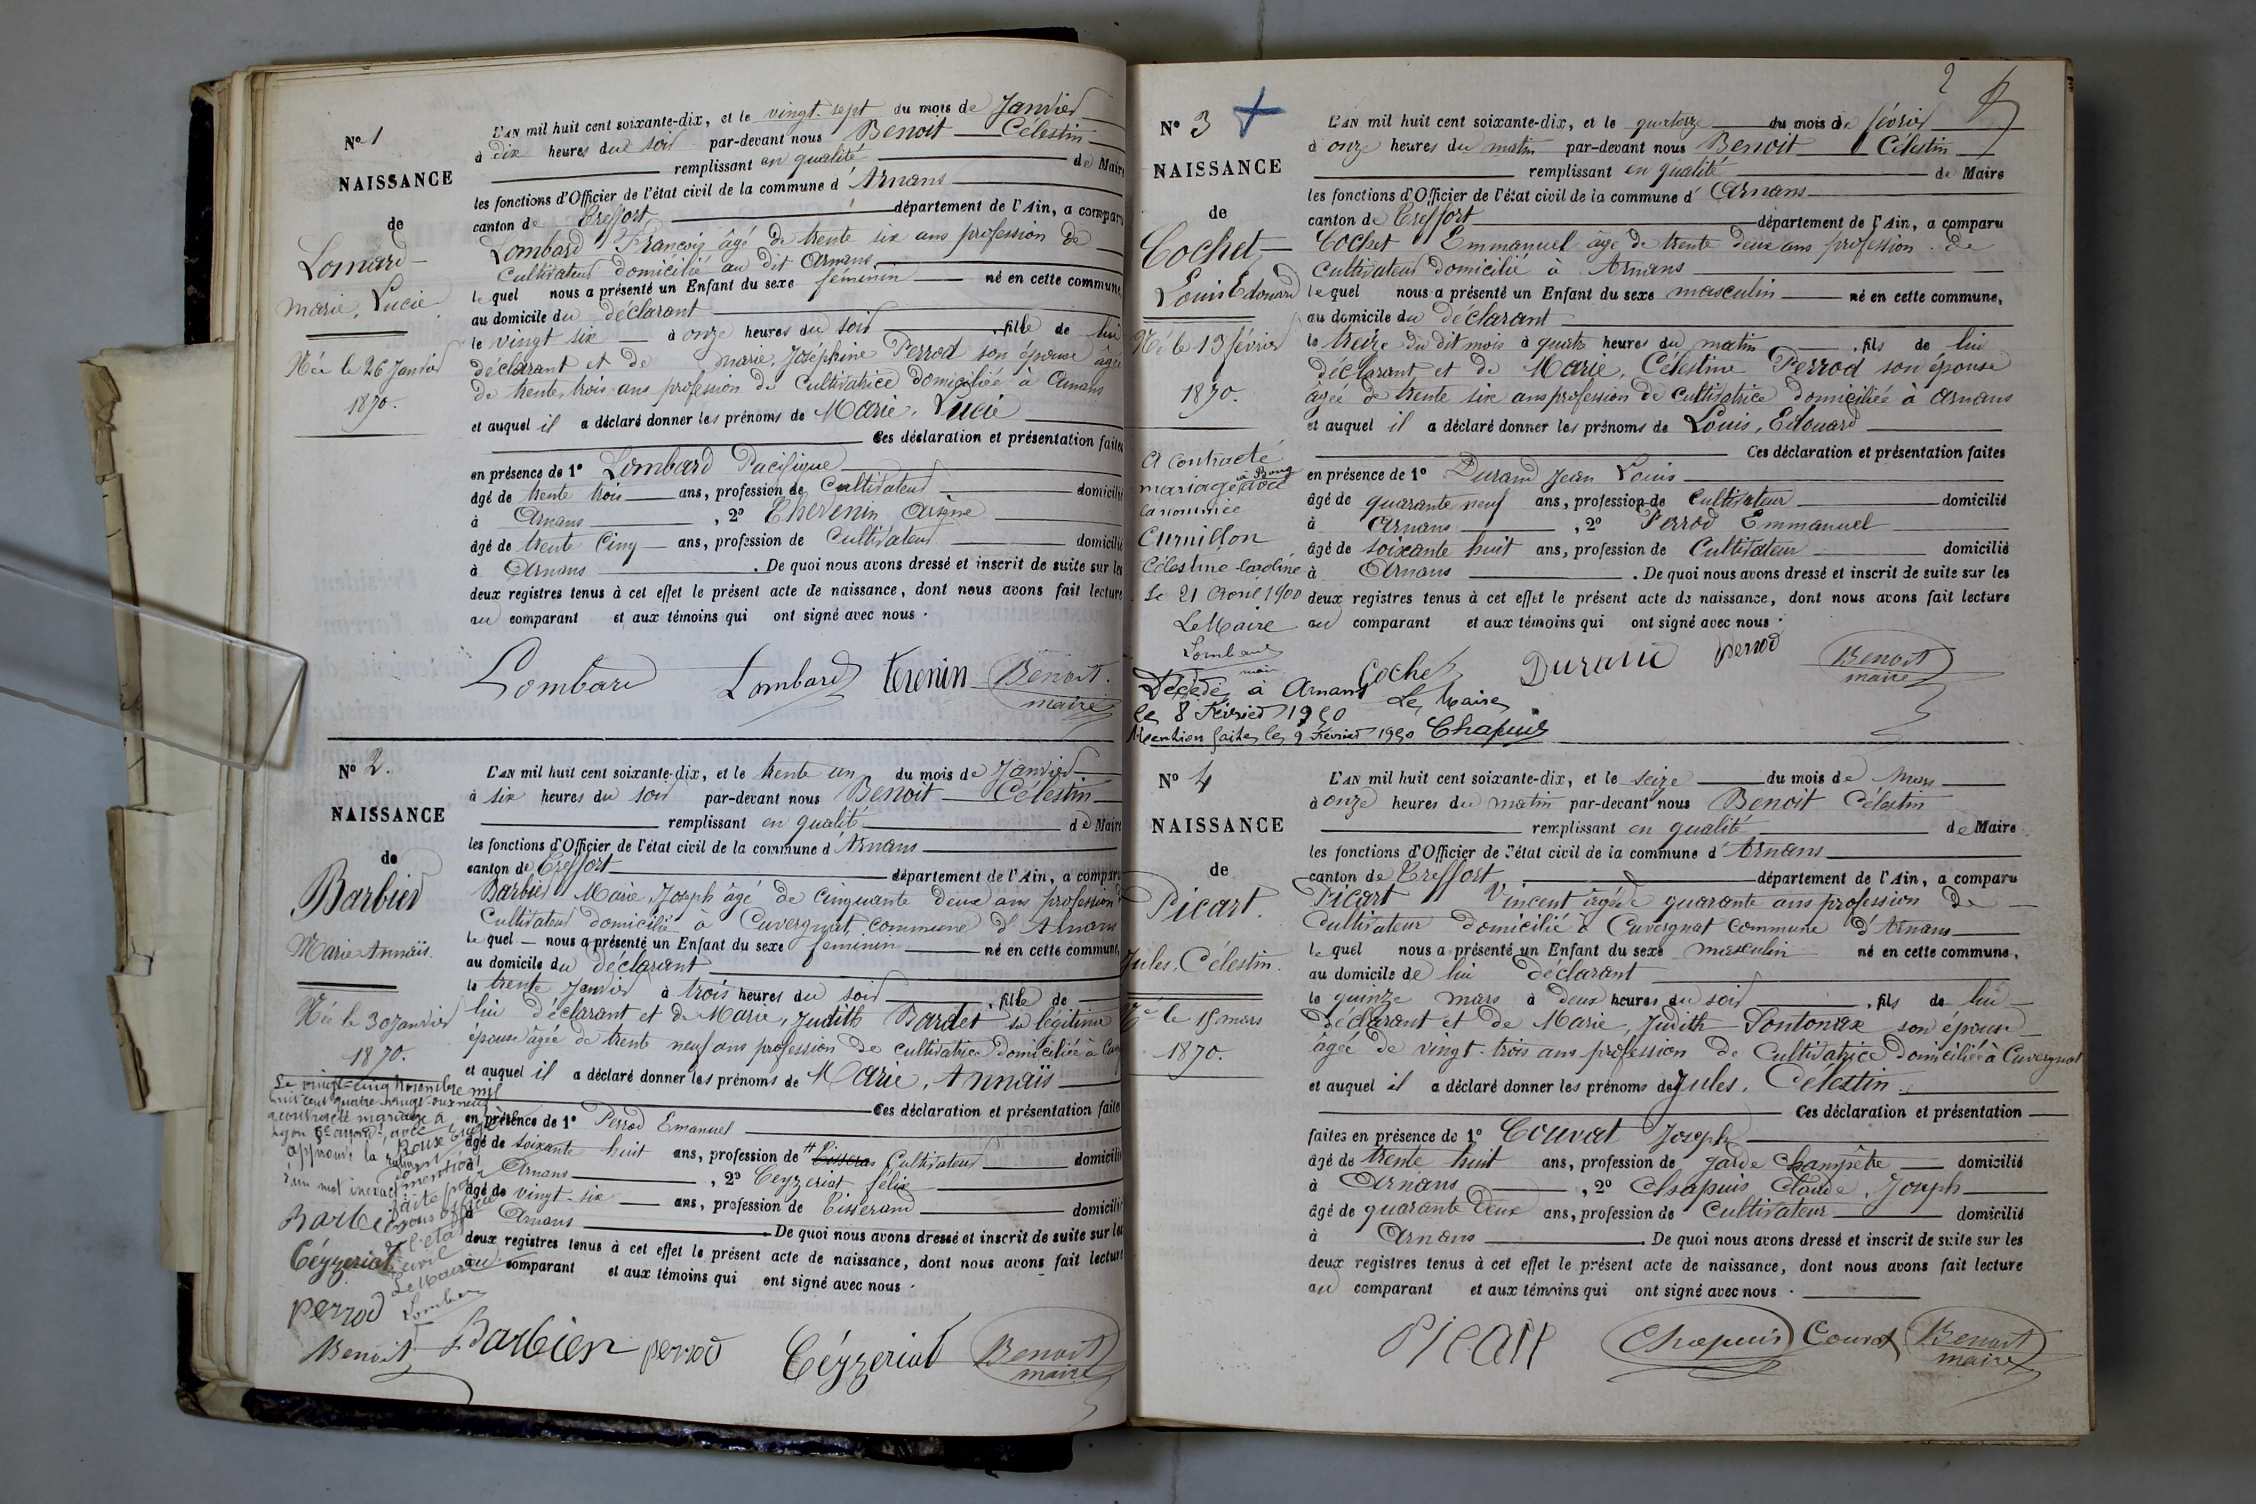 N° 1
NAISSANCE
de
Lomard
Marie, Lucie
Née le 26 Janvier
1870.
L'AN mil huit cent soixante-dix, et le vingt-sept du mois de Janvier
à dix heures du soir par-devant nous Benoit Célestin
remplissant en qualité de Maire
les fonctions d'Officier de l'état civil de la commune d' Arnans
canton de Treffort département de l'Ain, a comparu
Lombard François âgé de trente six ans profession de
Cultivateur domicilié au dit Arnans
lequel nous a présenté un Enfant du sexe féminin né en cette commune,
au domicile du déclarant
le vingt six à onze heures du soir, fille de lui
déclarant et de Marie, Joséphine Perrod son épouse âgée
de trente, trois ans profession de Cultivatrice domiciliée à Arnans
et auquel il a déclaré donner les prénoms de Marie, Lucie
Ces déclaration et présentation faites
en présence de 1° Lombard Pacifique
âgé de trente trois ans, profession de Cultivateur domicilié
à Arnans, 2° Thevenin Arsène
âgé de trente Cinq ans, profession de Cultivateur domicilié
à Arnans. De quoi nous avons dressé et inscrit de suite sur les
deux registres tenus à cet effet le présent acte de naissance, dont nous avons fait lecture
au comparant et aux témoins qui ont signé avec nous.
Lombard Lombard tevenin Benoit.
maire
N° 2.
NAISSANCE
de
Barbier
Marie Annaïs.
Née le 30 Janvier
1870.
Le vingt-cinq Novembre mil
huit cent quatre-vingt-onze
a contracté mariage à
Lyon avec
Roux
approuvé la rature
d'un mot
mention
faite par
nous officier
de l'état
civil
Le Maire
Lombard
Barbier
Céyzeriat
perrod
Benoit
L'AN mil huit cent soixante-dix, et le trente un du mois de Janvier
à six heures du soir par-devant nous Benoit Célestin
remplissant en qualité de Maire
les fonctions d'Officier de l'état civil de la commune d Arnans
canton de Treffort département de l'Ain, a comparu
Barbier Marie Joseph âgé de cinquante deux ans profession d
Cultivateur domicilié à Cuvergnat, commune d'Arnans
lequel nous a présenté un Enfant du sexe féminin né en cette commune,
au domicile du déclarant
le trente Janvier à trois heures du soir, fille de
lui déclarant et de Marie, Judith Bardet sa légitime
épouse âgée de trente neuf ans profession de cultivatrice domiciliée à Cuv
et auquel il a déclaré donner les prénoms de Marie, Annaïs
Ces déclaration et présentation faites
en présence de 1° Perrod Emanuel
âgé de soixante huit ans, profession de Cultivateur domicilié
à Arnans, 2° Ceyzeriat félix
âgé de vingt-six ans, profession de Tisserand domicilié
à Arnans De quoi nous avons dressé et inscrit de suite sur les
deux registres tenus à cet effet le présent acte de naissance, dont nous avons fait lecture
au comparant et aux témoins qui ont signé avec nous.
Barbier perrod Céyzeriat Benoit
maire
2
N° 3
NAISSANCE
de
Cochet
Louis Edouard
Né le 13 février
1870.
A contracté
mariage à Bourg avec
la nommée
Curnillon
Célestine Caroline
Le 21 Avril 1900
Le Maire
Lombard
maire
Décédé à Arnans
le 8 Février 1950
Mention faite le 9 Février 1950
Le Maire
Chapuis
L'AN mil huit cent soixante-dix, et le quatorze du mois de février
à onze heures du matin par-devant nous Benoit Célestin
remplissant en qualité de Maire
les fonctions d'Officier de l'état civil de la commune d' Arnans
canton de Treffort département de l'Ain, a comparu
Cochet Emmanuel âgé de trente deux ans profession de
cultivateur domicilié à Arnans
lequel nous a présenté un Enfant du sexe masculin né en cette commune,
au domicile du déclarant
le treize du dit mois à quatre heures du matin, fils de lui
déclarant et de Marie, Célestine Perrod son épouse
âgée de trente six ans profession de cultivatrice domiciliée à Arnans
et auquel il a déclaré donner les prénoms de Louis, Edouard
Ces déclaration et présentation faites
en présence de 1° Durand Jean Louis
âgé de quarante neuf ans, profession de Cultivateur domicilié
à Arnans, 2° Perrod Emmanuel
âgé de soixante huit ans, profession de Cultivateur domicilié
à Arnans. De quoi nous avons dressé et inscrit de suite sur les
deux registres tenus à cet effet le présent acte de naissance, dont nous avons fait lecture
au comparant et aux témoins qui ont signé avec nous.
Cochet Durand perrod Benoit
maire
N° 4
NAISSANCE
de
Picart.
Jules, Célestin.
Né le 15 mars
1870.
L'AN mil huit cent soixante-dix, et le seize du mois de Mars
à onze heures du matin par-devant nous Benoit Célestin
remplissant en qualité de Maire
les fonctions d'Officier de l'état civil de la commune d' Arnans
canton de Treffort département de l'Ain, a comparu
Picart Vincent âgé de quarante ans profession de
Cultivateur domicilié à Cuvergnat commune d'Arnans
lequel nous a présenté un Enfant du sexe masculin né en cette commune,
au domicile de lui déclarant
le quinze mars à deux heures du soir, fils de lui
déclarant et de Marie, Judith Sontonax son épouse
âgée de vingt-trois ans profession de Cultivatrice domiciliée à Cuvergnat
et auquel il a déclaré donner les prénoms de Jules, Célestin
Ces déclaration et présentation
faites en présence de 1° Couvat Joseph
âgé de trente huit ans, profession de garde Champêtre domicilié
à Arnans, 2° Chapuis Claude, Joseph
âgé de quarante deux ans, profession de Cultivateur domicilié
à Arnans. De quoi nous avons dressé et inscrit de suite sur les
deux registres tenus à cet effet le présent acte de naissance, dont nous avons fait lecture
au comparant et aux témoins qui ont signé avec nous.
Picart Chapuis Couvat Benoit
maire